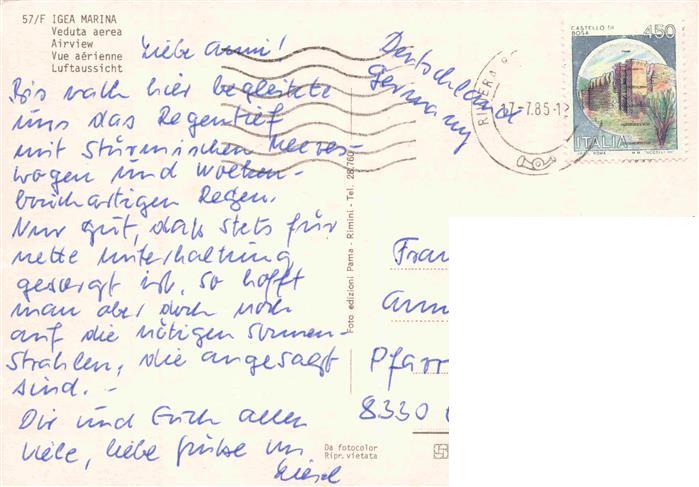 57/F IGEA MARINA
Veduta aerea
Airview
Vue aérienne
Luftaussicht
Liebe Anni!
Bis nach hier begleitete
uns das Regentief
mit stürmischen Meeres-
wogen und Wolken-
bruchartigen Regen.
Nur gut, daß stets für
nette Unterhaltung
gesorgt ist, so hofft
man aber doch noch
auf die nötigen Sonnen-
strahlen, die angesagt
sind. -
Dir und Euch allen
viele, liebe Grüße
Deutschland
Germany
CASTELLO DI
BOSA
450
ITALIA
RIVIERA
17-7.85-1
Foto edizioni Pama - Rimini - Tel. 28.760
Frau
Anni
Pfarr
8330
Da fotocolor
Ripr. vietata